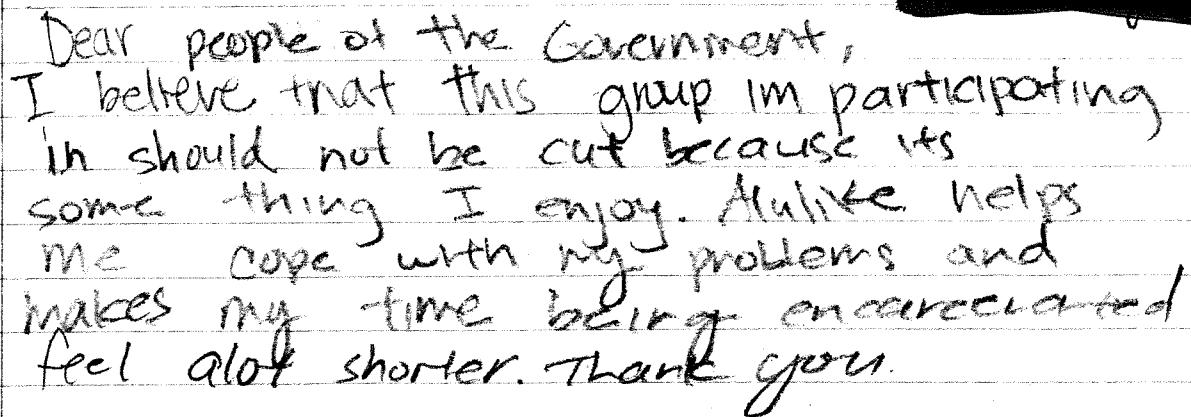 Dear people of the Government,
I believe that this group im participating
in should not be cut because its
some thing I enjoy. Alulike helps
me cope with my problems and
makes my time being encarcerated
feel alot shorter. Thank you.